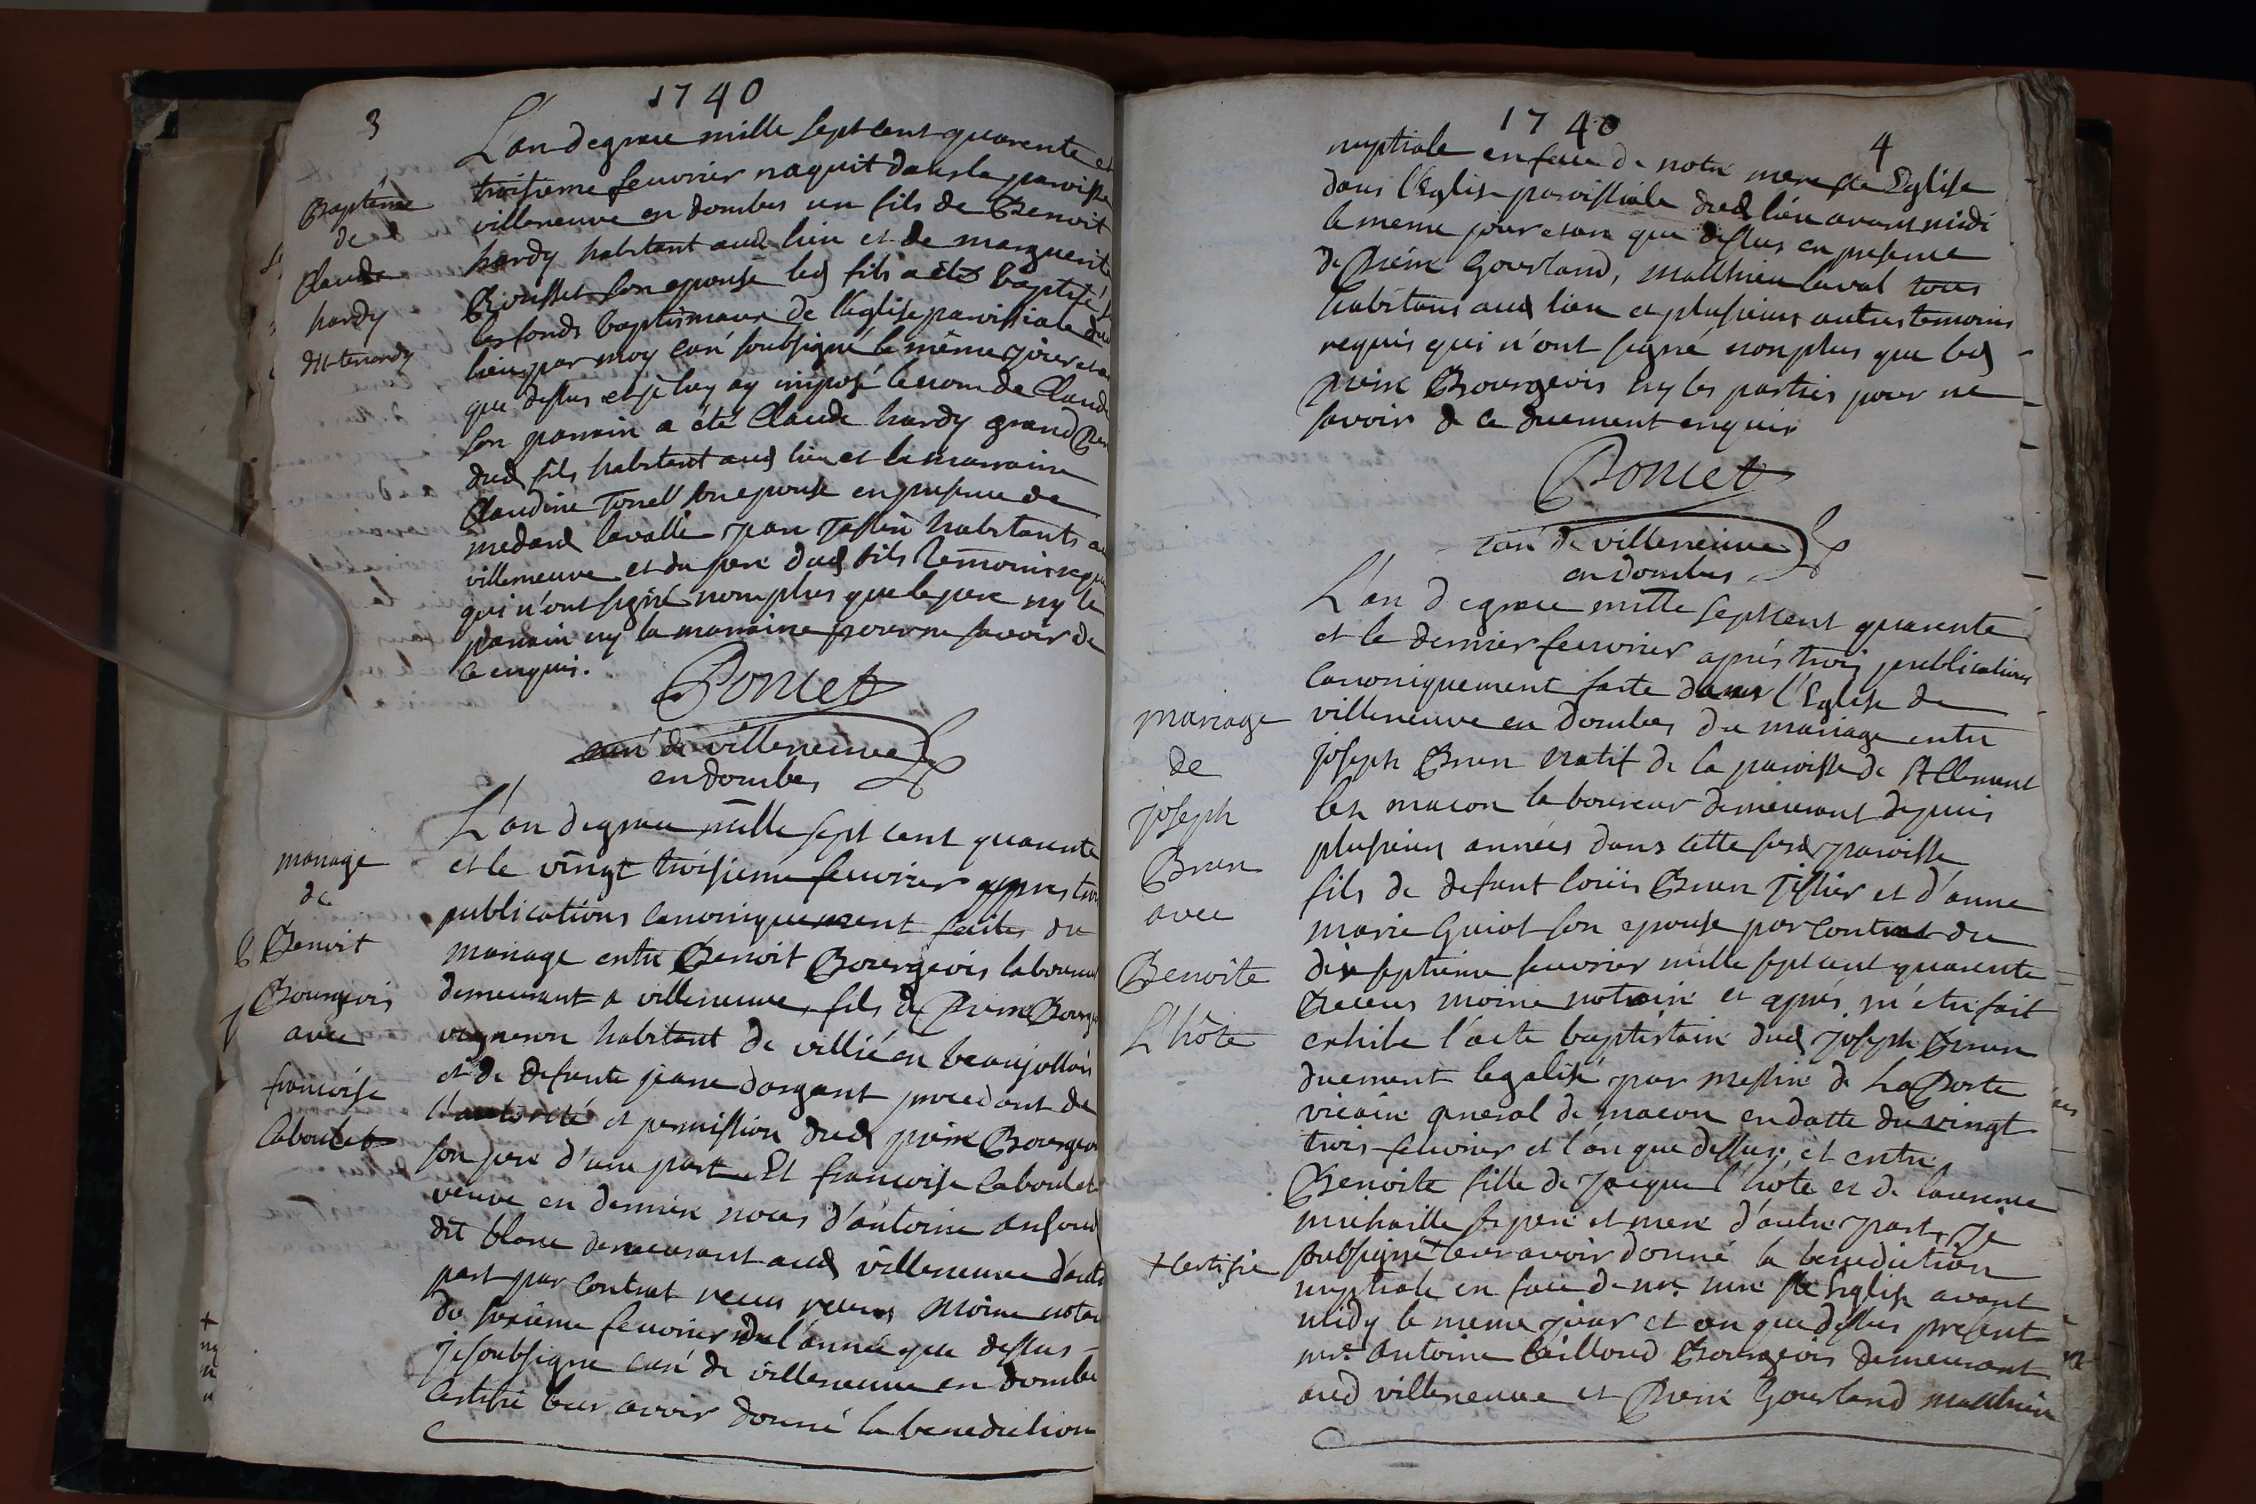 3
1740
Baptême
de
Claude
hardy
dit tenardy
L'an de grace mille sept cent quarente et
troisieme feuvrier naquit dans la paroisse
villeneuve en dombes un fils de Benoit
hardy habitant aud lieu et de marguerite
Rousset son epouse led fils a été baptisé s
les fonds baptismaux de l'eglise paroissiale dud
lieu par moy curé soubsigné le même jour et an
que dessus et je luy ay imposé le nom de Claude
son parrain a été Claude hardy grand Per
dud fils habitant aud lieu et la marraine
Claudine Torrel son epouse en presence de
medard lavalle jean Tassin habitants a
villeneuve et du pere dud fils temoins requ
qui n'ont signé nomplus que le pere ny le
parrain ny la marraine pour ne savoir de
ce enquis.
Poncet
curé de villeneuve
en dombes
mariage
de
Benoit
Bourgeois
avec
francoise
Caboulet
L'an de grace mille sept cent quarente
et le vingt troisieme feuvrier appres troi
publications canoniquement faites du
mariage entre Benoit Bourgeois laboureur
demeurant a villeneuve, fils de Pierre Bourge
vigneron habitant de villié en beaujollois
et de defunte jeane dargant procedant de
l'autorité et permission dud pierre Bourgeois
son pere d'une part Et francoise Caboulet
veuve en derniere noces d'antoine
dit blanc demeurant aud villeneuve d'autre
part par contrat receu receus moine notai
du sixieme feuvrier de l'année que dessus
je soubsigne curé de villeneuve en dombe
certifie leur avoir donné la benediction
1740
4
nuptiale en face de notre mere ste Eglise
dans l'Eglise paroissiale dud lieu avant midi
le meme jour et an que dessus en presence
de Pierre Gourland, matthieu laval tous
habitans aud lieu et plusieurs autres temoins
requis qui n'ont signé nonplus que led
pierre Bourgeois ny les parties pour ne
savoir de ce duement enquis
Poncet
curé de villeneuve
en dombes
mariage
de
joseph
Brun
avec
Benoite
L'hôte
L'an de grace mille sept cent quarente
et le dernier feuvrier aprés trois publications
canoniquement faite dans l'Eglise de
villeneuve en dombes du mariage entre
joseph Brun natif de la paroisse de St Clement
les macon laboureur demeurant depuis
plusieurs années dans cette susd paroisse
fils de defunt loüis Brun Tissier et d'anne
marie Guiot son epouse par contrat du
dix septieme feuvrier mille sept cent quarente
receus moine notaire et aprés m'etre fait
exhibe l'acte baptistaire dud joseph Brun
duement legalisé par messire de La Porte
vicaire general de macon en datte du vingt
trois feuvrier et l'an que dessus et entre
Benoite fille de jacque l'hôte et de laurence
michaille ses pere et mere d'autre part, je
soubsigné + leur avoir donné la benediction
+ certifie
nuptiale en face de nre mere ste Eglise avant
midy le meme jour et an que dessus present
mre Antoine Cailloud Bourgeois demeurant
aud villeneuve et Pierre Gourland matthieu